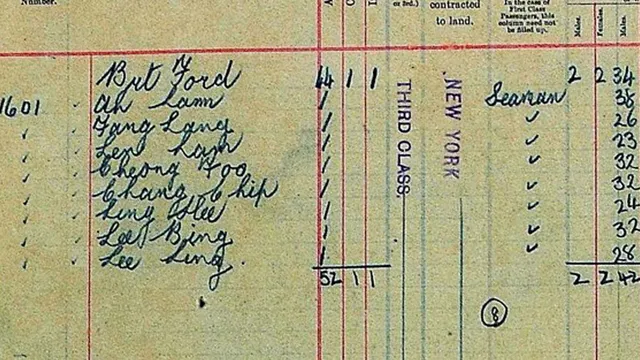 Number.
A C I
or 3rd.)
contracted
to land.
In the case of
First Class
Passengers, this
column need not
be filled up.
Males.
Females.
Males.
Brt Ford 44 1 1 2 2 34
1601 Ah Lam 1 Seaman 38
Fang Lang 1 26
Len Lam 1 23
Cheong Foo 1 32
Chang Chip 1 32
Ling Hee 1 24
Lee Bing 1 32
Lee Ling. 1 28
52 1 1 2 2 42
THIRD CLASS.
NEW YORK
8